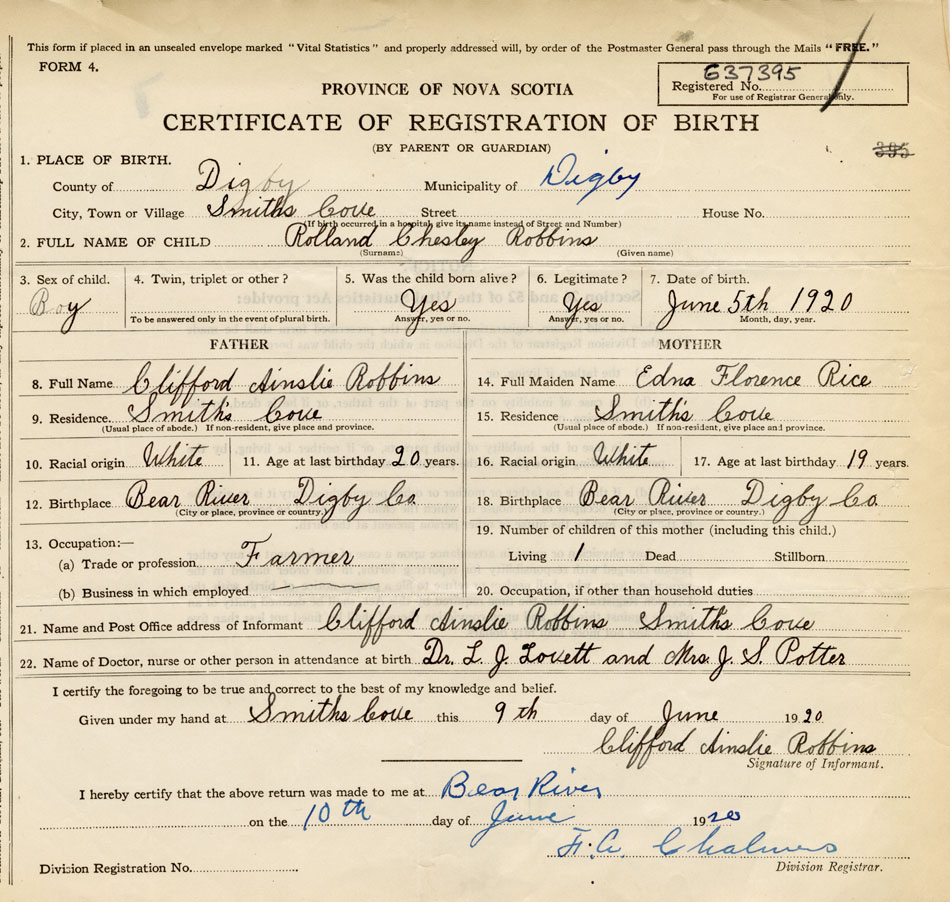 This form if placed in an unsealed envelope marked "Vital Statistics" and properly addressed will, by order of the Postmaster General pass through the Mails "FREE."
FORM 4.
637395
Registered No.
For use of Registrar General only.
PROVINCE OF NOVA SCOTIA
CERTIFICATE OF REGISTRATION OF BIRTH
(BY PARENT OR GUARDIAN)
395
1. PLACE OF BIRTH.
County of Digby Municipality of Digby
City, Town or Village Smiths Cove Street House No.
(If birth occurred in a hospital, give its name instead of Street and Number)
2. FULL NAME OF CHILD Rolland Chesley Robbins
(Surname) (Given name)
3. Sex of child. 4. Twin, triplet or other? 5. Was the child born alive? 6. Legitimate? 7. Date of birth.
Boy Yes Yes June 5th 1920
To be answered only in the event of plural birth. Answer, yes or no. Answer, yes or no. Month, day, year.
FATHER MOTHER
8. Full Name Clifford Ainslie Robbins 14. Full Maiden Name Edna Florence Rice
9. Residence. Smith's Cove 15. Residence Smith's Cove
(Usual place of abode.) If non-resident, give place and province. (Usual place of abode.) If non-resident, give place and province.
10. Racial origin White 11. Age at last birthday 20 years. 16. Racial origin White 17. Age at last birthday 19 years.
12. Birthplace Bear River Digby Co 18. Birthplace Bear River Digby Co
(City or place, province or country.) (City or place, province or country.)
19. Number of children of this mother (including this child.)
13. Occupation:—
(a) Trade or profession Farmer Living 1 Dead Stillborn
(b) Business in which employed 20. Occupation, if other than household duties
21. Name and Post Office address of Informant Clifford Ainslie Robbins Smith's Cove
22. Name of Doctor, nurse or other person in attendance at birth Dr. L. J. Lovett and Mrs. J. S. Potter
I certify the foregoing to be true and correct to the best of my knowledge and belief.
Given under my hand at Smiths Cove this 9th day of June 1920
Clifford Ainslie Robbins
Signature of Informant.
I hereby certify that the above return was made to me at Bear River
on the 10th day of June 1920
F. A. Chalmers
Division Registration No. Division Registrar.